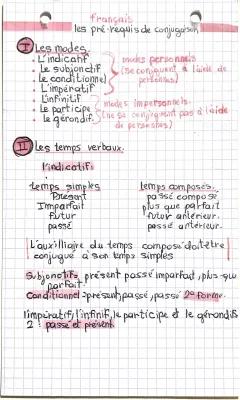 français
les pré-requis de conjugaison
I Les modes.
. L'indicatif
. Le subjonctif
. Le conditionnel
. L'impératif
modes personnels
(se conjuguent à l'aide de
personnes)
. L'infinitif
. Le participe
. le gérondif.
modes impersonnels.
(ne se conjuguent pas à l'aide
de personnes)
II les temps verbaux.
l'indicatif:
temps simples temps composés.
Présent passé composé
Imparfait plus que parfait
futur futur antérieur.
passé passé antérieur.
L'auxilliaire du temps composé doit être
conjugué à son temps simples
Subjonctif: présent passé imparfait, plus que
parfait.
Conditionnel: présent, passé, passé 2e forme.
l'impératif, l'infinif, le participe et le gérondif
2 : passé et présent.